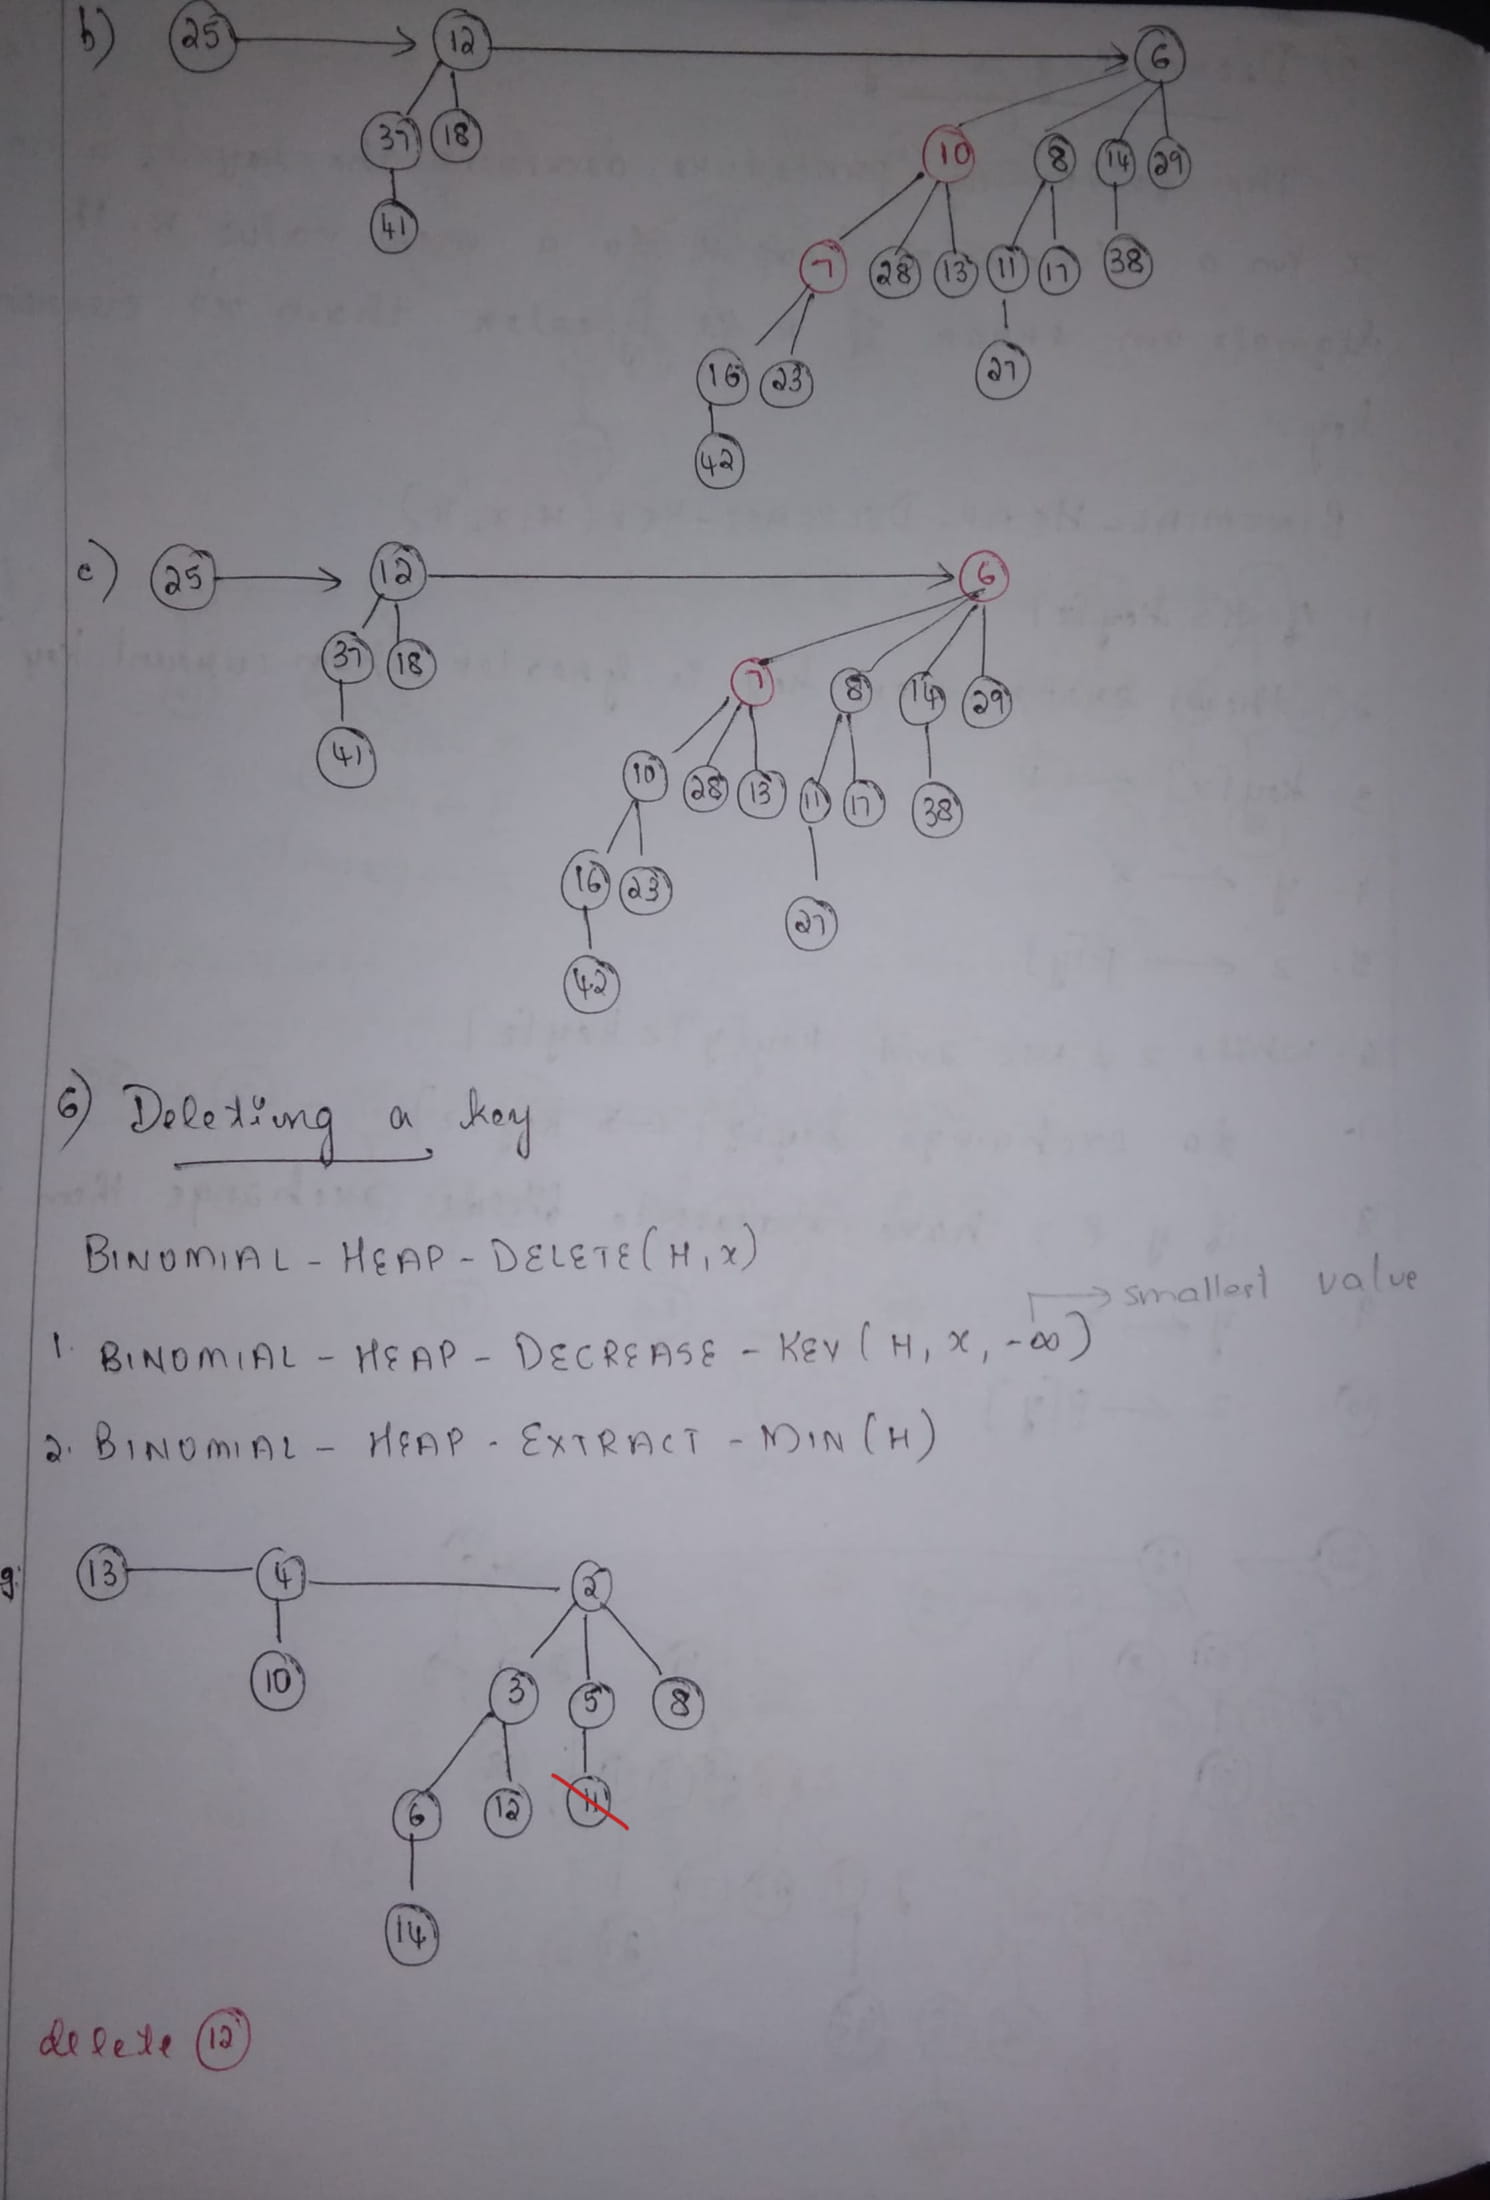 b) 25 12 6
37 18 10 8 14 29
41 7 28 13 11 17 38
16 23 27
42
c) 25 12 6
37 18 7 8 14 29
41 10 28 13 11 17 38
16 23 27
42
6) Deleting a key
BINOMIAL - HEAP - DELETE(H, x)
smallest value
1. BINOMIAL - HEAP - DECREASE - KEY (H, x, -∞)
2. BINOMIAL - HEAP - EXTRACT - MIN (H)
g: 13 4 2
10 3 5 8
6 12 11
14
delete 12